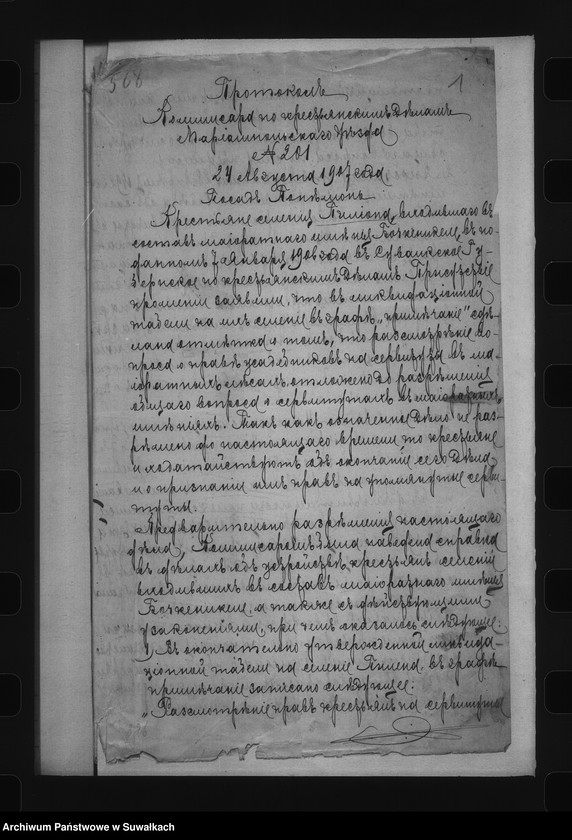 568 1
Протоколъ
Коммисара по крестьянскимъ дѣламъ
Маріампольскаго уѣзда
№ 201
24 Августа 1907 года
Посадъ
Крестьяне селенія входившаго въ
составъ маіоратнаго имѣнія въ по-
данномъ 7 Января 1906 года въ Сувалкское Гу-
бернское по крестьянскимъ дѣламъ Присутствіе
прошеніи заявили, что въ ликвидаціонной
табели на ихъ селеніе въ графѣ „примѣчаніе" сдѣ-
лана отмѣтка о томъ, что разсмотрѣніе во-
проса о правѣ усадебниковъ на сервитуты въ ма-
іоратныхъ лѣсахъ, отложено до разрѣшенія
общаго вопроса о сервитутахъ въ маіоратныхъ
имѣніяхъ. Такъ какъ означенное дѣло не раз-
рѣшено до настоящаго времени, то крестьяне
и ходатайствуютъ объ окончаніи сего дѣла
и о признаніи имъ правъ на упомянутые серви-
туты.
Предварительно разрѣшенія настоящаго
дѣла, Коммисаромъ была наведена справка
въ дѣлахъ объ устройствѣ крестьянъ селеній
входившихъ въ составъ маіоратнаго имѣнія
а также съ дѣйствующими
узаконеніями, при чемъ оказалось слѣдующее:
1) Въ окончательно утвержденной ликвида-
ціонной табели на селеніе въ графѣ
примѣчаніе записано слѣдующее:
„Разсмотрѣніе правъ крестьянъ на сервитуты
Archiwum Państwowe w Suwałkach